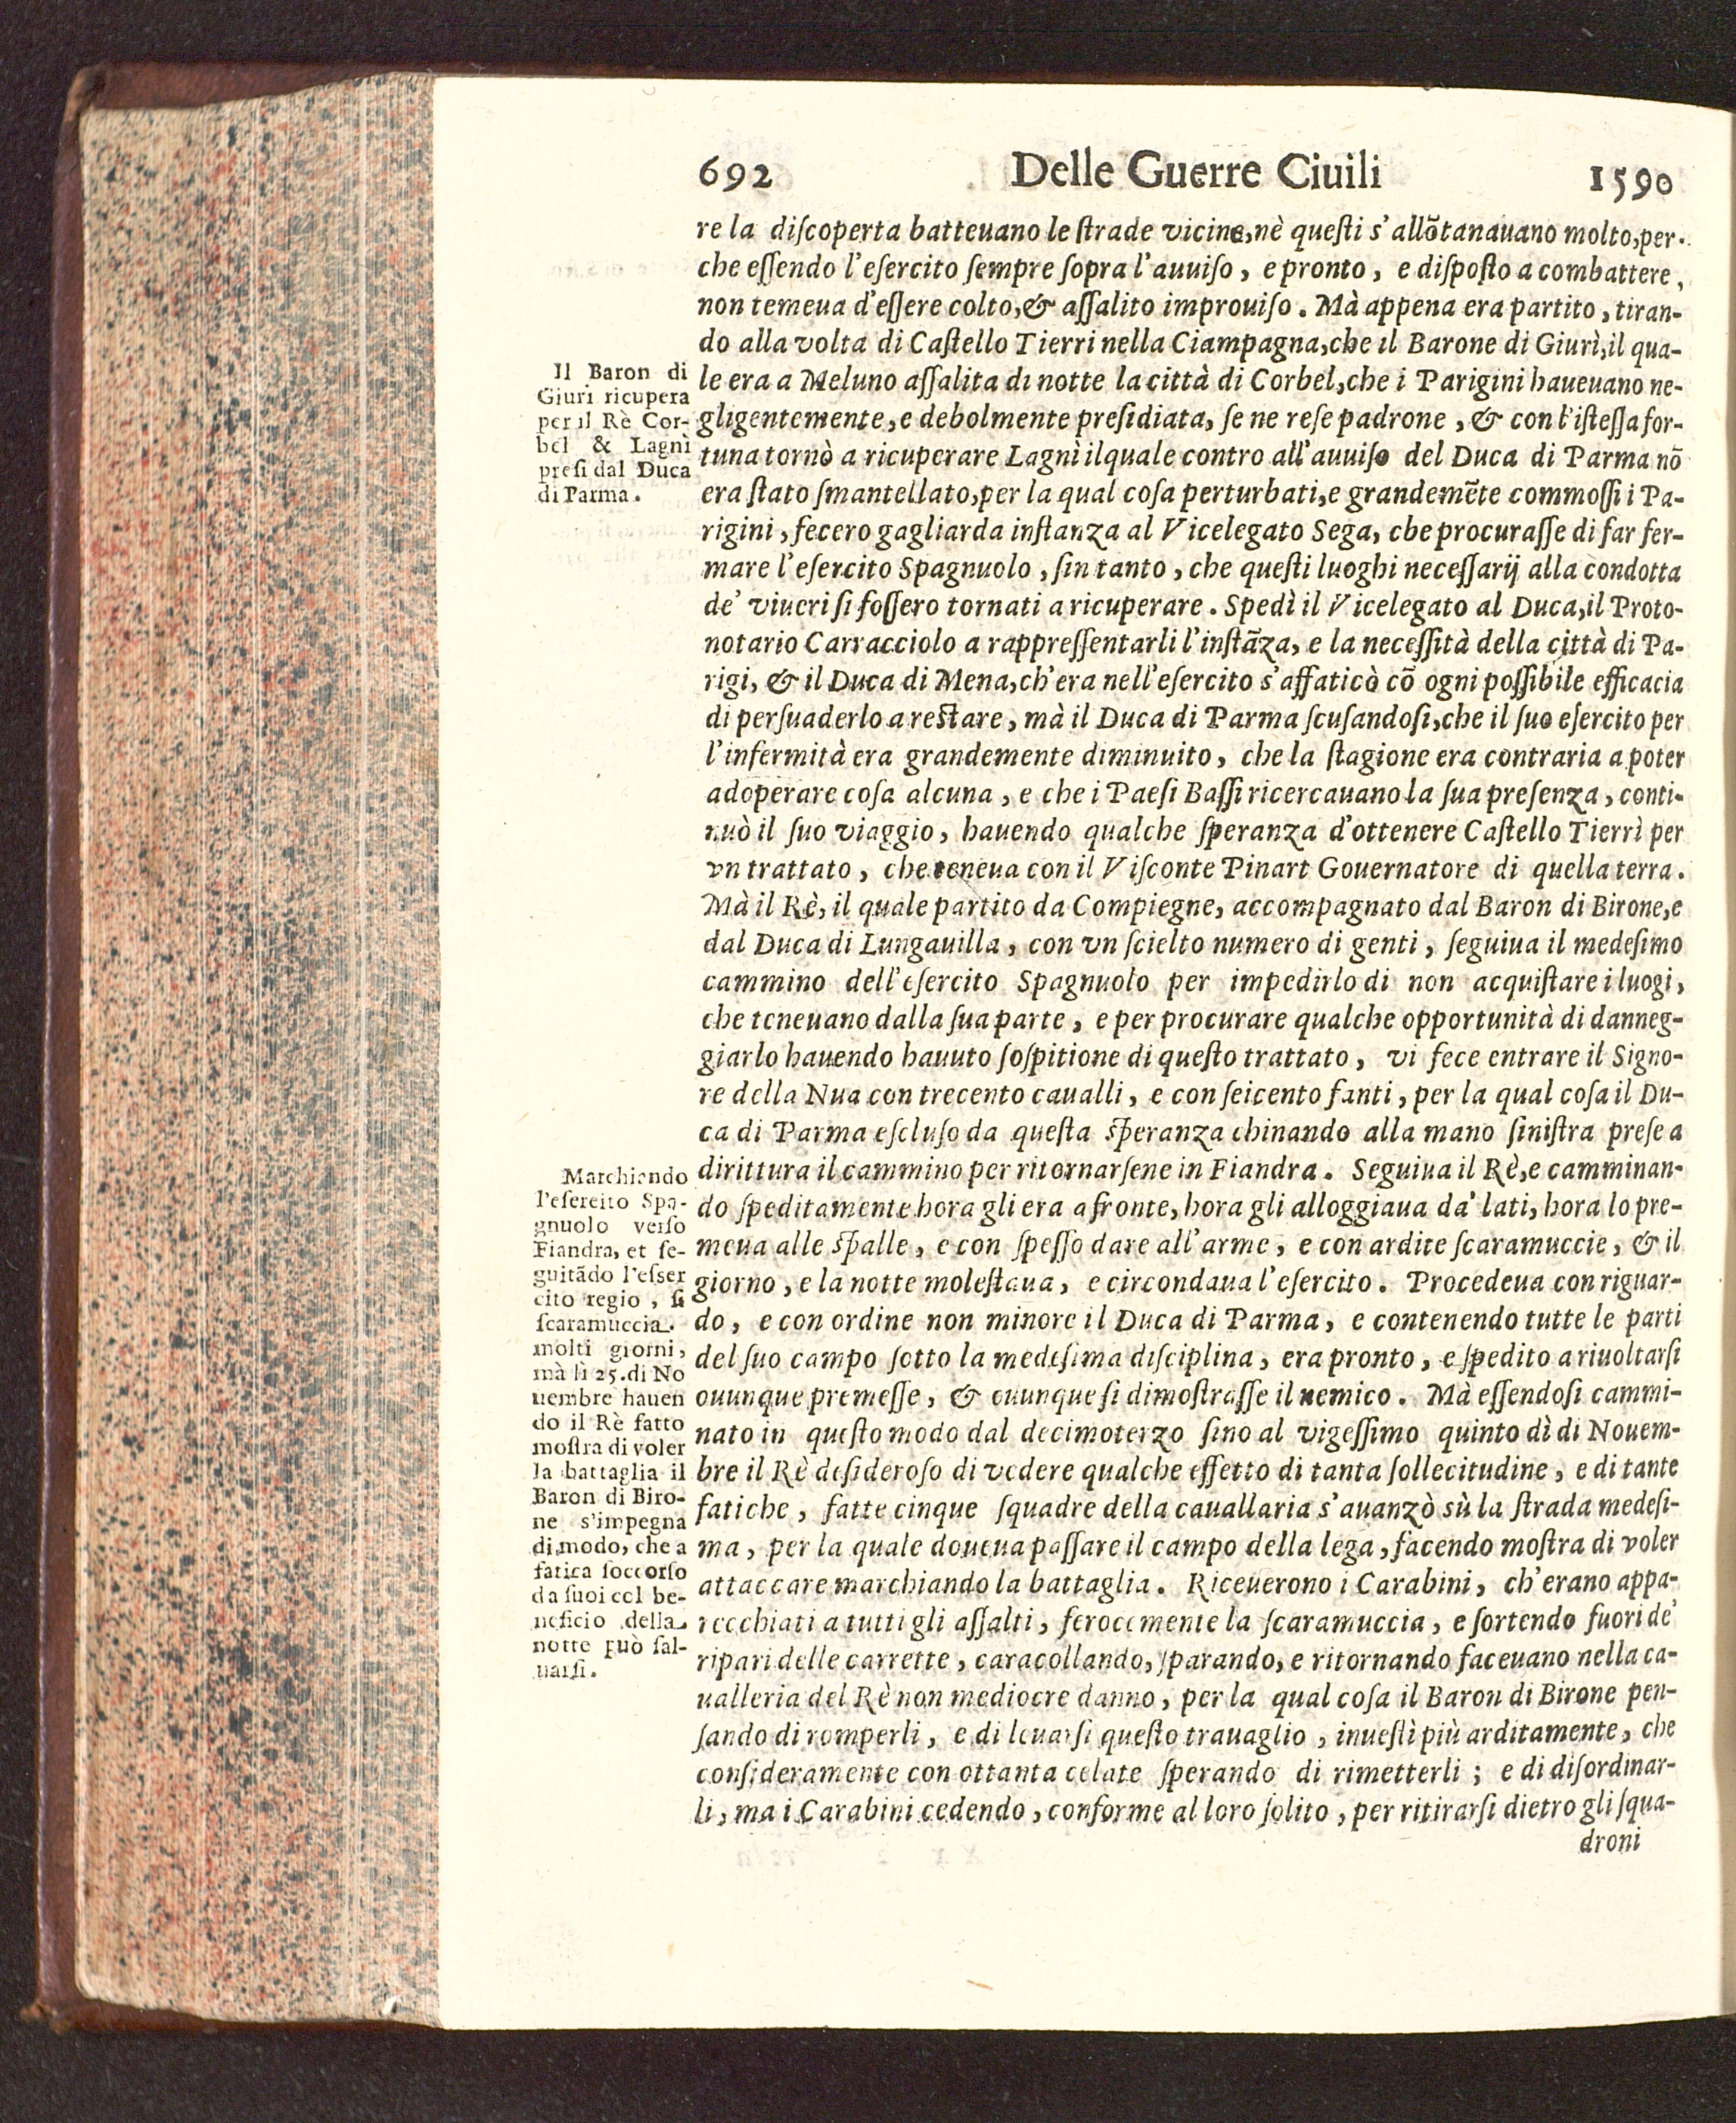 692 Delle Guerre Ciuili 1590
re la diſcoperta batteuano le ſtrade vicine, nè queſti s'allõtanauano molto, per-
che eſſendo l'eſercito ſempre ſopra l'auuiſo, e pronto, e diſpoſto a combattere,
non temeua d'eſſere colto, & aſſalito improuiſo. Mà appena era partito, tiran-
do alla volta di Caſtello Tierri nella Ciampagna, che il Barone di Giurì, il qua-
le era a Meluno aſſalita di notte la città di Corbel, che i Parigini haueuano ne-
gligentemente, e debolmente preſidiata, ſe ne reſe padrone, & con l'iſteſſa for-
tuna tornò a ricuperare Lagnì il quale contro all'auuiſo del Duca di Parma nõ
era ſtato ſmantellato, per la qual coſa perturbati, e grandemẽte commoſſi i Pa-
rigini, fecero gagliarda inſtanza al Vicelegato Sega, che procuraſſe di far fer-
mare l'eſercito Spagnuolo, ſin tanto, che queſti luoghi neceſſarij alla condotta
de' viueri ſi foſſero tornati a ricuperare. Spedì il Vicelegato al Duca, il Proto-
notario Carracciolo a rappreſſentarli l'inſtãza, e la neceſſità della città di Pa-
rigi, & il Duca di Mena, ch'era nell'eſercito s'affaticò cõ ogni poſſibile efficacia
di perſuaderlo a reſtare, mà il Duca di Parma ſcuſandoſi, che il ſuo eſercito per
l'infermità era grandemente diminuito, che la ſtagione era contraria a poter
adoperare coſa alcuna, e che i Paeſi Baſſi ricercauano la ſua preſenza, conti-
nuò il ſuo viaggio, hauendo qualche ſperanza d'ottenere Caſtello Tierrì per
vn trattato, che teneua con il Viſconte Pinart Gouernatore di quella terra.
Mà il Rè, il quale partito da Compiegne, accompagnato dal Baron di Birone, e
dal Duca di Lungauilla, con vn ſcielto numero di genti, ſeguiua il medeſimo
cammino dell'eſercito Spagnuolo per impedirlo di non acquiſtare i luogi,
che teneuano dalla ſua parte, e per procurare qualche opportunità di danneg-
giarlo hauendo hauuto ſoſpitione di queſto trattato, vi fece entrare il Signo-
re della Nua con trecento caualli, e con ſeicento fanti, per la qual coſa il Du-
ca di Parma eſcluſo da queſta ſperanza chinando alla mano ſiniſtra preſe a
dirittura il cammino per ritornarſene in Fiandra. Seguiua il Rè, e camminan-
do ſpeditamente hora gli era a fronte, hora gli alloggiaua da' lati, hora lo pre-
meua alle ſpalle, e con ſpeſſo dare all'arme, e con ardite ſcaramuccie, & il
giorno, e la notte moleſtaua, e circondaua l'eſercito. Procedeua con riguar-
do, e con ordine non minore il Duca di Parma, e contenendo tutte le parti
del ſuo campo ſotto la medeſima diſciplina, era pronto, e ſpedito a riuoltarſi
ouunque premeſſe, & ouunque ſi dimoſtraſſe il nemico. Mà eſſendoſi cammi-
nato in queſto modo dal decimoterzo ſino al vigeſſimo quinto dì di Nouem-
bre il Rè deſideroſo di vedere qualche effetto di tanta ſollecitudine, e di tante
fatiche, fatte cinque ſquadre della cauallaria s'auanzò sù la ſtrada medeſi-
ma, per la quale doueua paſſare il campo della lega, facendo moſtra di voler
attaccare marchiando la battaglia. Riceuerono i Carabini, ch'erano appa-
recchiati a tutti gli aſſalti, ferocemente la ſcaramuccia, e ſortendo fuori de'
ripari delle carrette, caracollando, ſparando, e ritornando faceuano nella ca-
ualleria del Rè non mediocre danno, per la qual coſa il Baron di Birone pen-
ſando di romperli, e di leuarſi queſto trauaglio, inueſtì più arditamente, che
conſideramente con ottanta celate ſperando di rimetterli; e di diſordinar-
li, ma i Carabini cedendo, conforme al loro ſolito, per ritirarſi dietro gli ſqua-
droni
Il Baron di
Giuri ricupera
per il Rè Cor-
bel & Lagnì
preſi dal Duca
di Parma.
Marchiando
l'eſercito Spa-
gnuolo verſo
Fiandra, et ſe-
guitãdo l'eſser
cito regio, ſi
ſcaramuccia
molti giorni,
mà lì 25. di No
uembre hauen
do il Rè fatto
moſtra di voler
la battaglia il
Baron di Biro-
ne s'impegna
di modo, che a
fatica ſoccorſo
da ſuoi col be-
neficio della
notte può ſal-
uarſi.